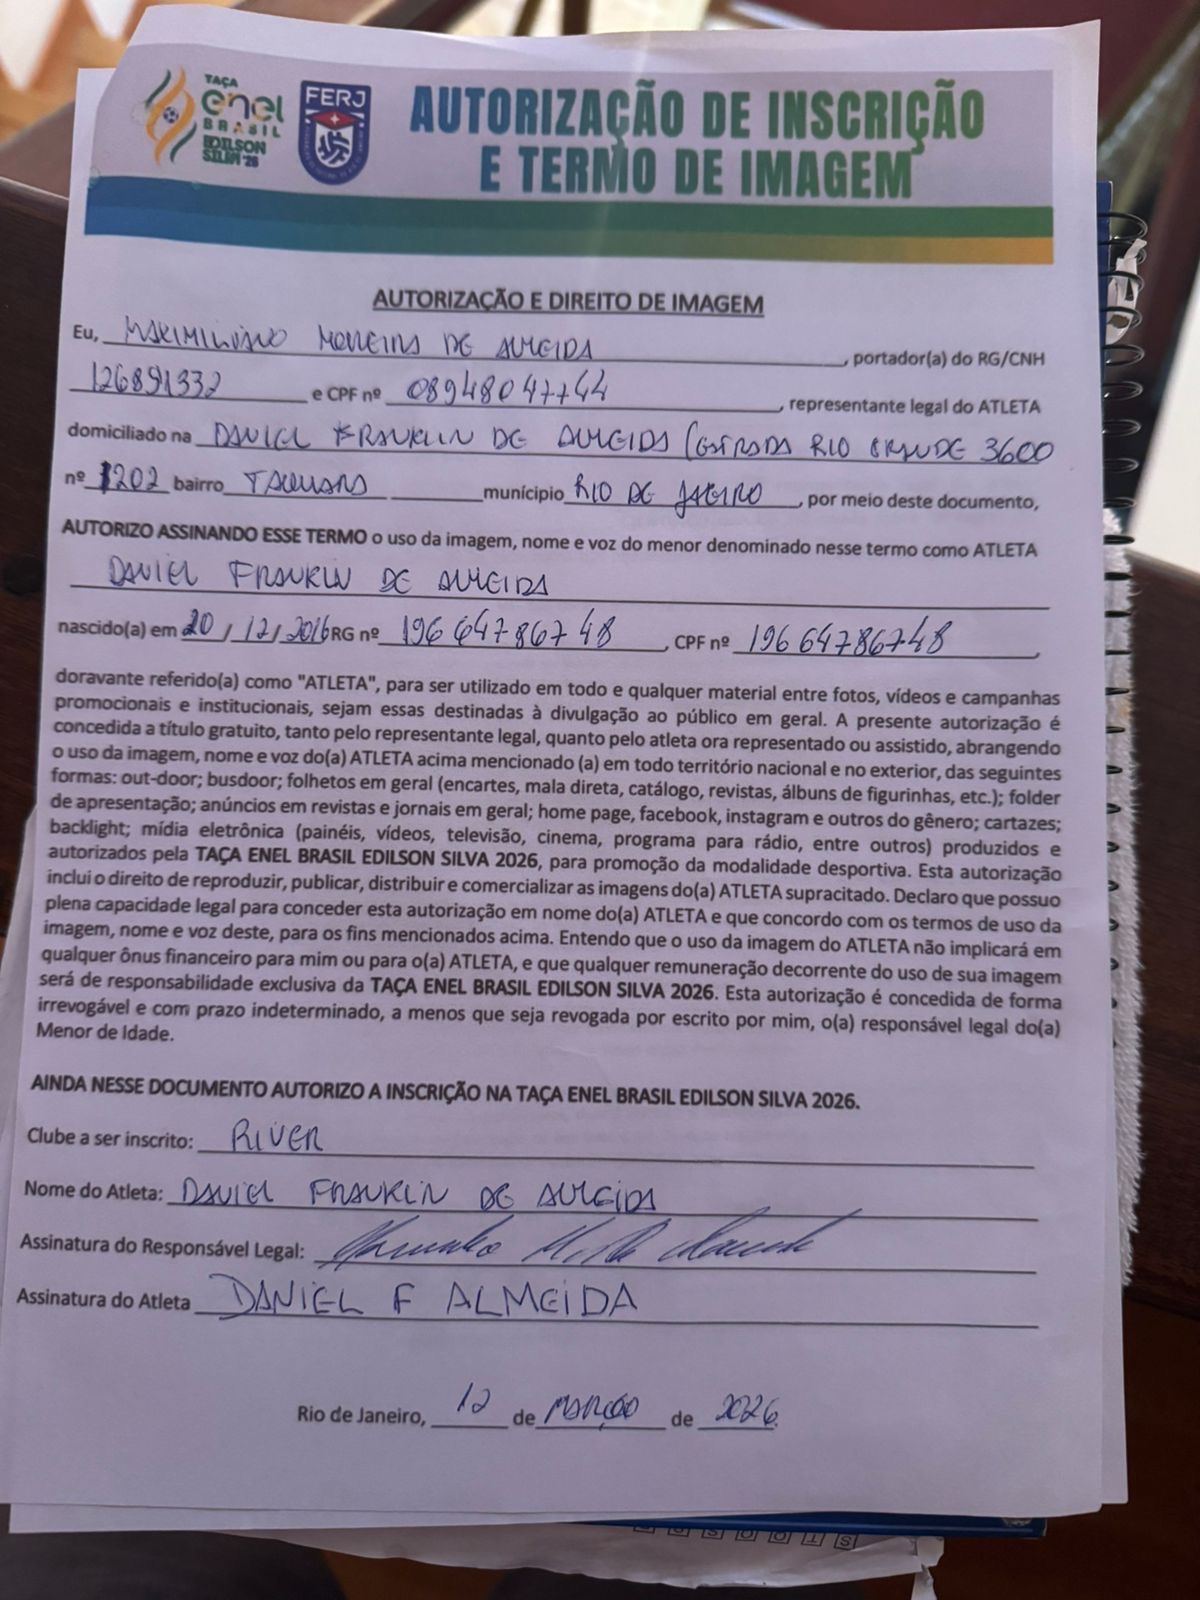 TAÇA
enel
BRASIL
EDILSON
SILVA'26
FERJ
AUTORIZAÇÃO DE INSCRIÇÃO
E TERMO DE IMAGEM
AUTORIZAÇÃO E DIREITO DE IMAGEM
Eu, MAXIMILIANO MOREIRA DE ALMEIDA, portador(a) do RG/CNH
126891332 e CPF nº 08948047744, representante legal do ATLETA
domiciliado na DANIEL FRANKLIN DE ALMEIDA (ESTRADA RIO GRANDE 3600
nº 1202 bairro TAQUARA município RIO DE JANEIRO, por meio deste documento,
AUTORIZO ASSINANDO ESSE TERMO o uso da imagem, nome e voz do menor denominado nesse termo como ATLETA
DANIEL FRANKLIN DE ALMEIDA
nascido(a) em 20/12/2016 RG nº 196 647867 48, CPF nº 196 647867 48,
doravante referido(a) como "ATLETA", para ser utilizado em todo e qualquer material entre fotos, vídeos e campanhas
promocionais e institucionais, sejam essas destinadas à divulgação ao público em geral. A presente autorização é
concedida a título gratuito, tanto pelo representante legal, quanto pelo atleta ora representado ou assistido, abrangendo
o uso da imagem, nome e voz do(a) ATLETA acima mencionado (a) em todo território nacional e no exterior, das seguintes
formas: out-door; busdoor; folhetos em geral (encartes, mala direta, catálogo, revistas, álbuns de figurinhas, etc.); folder
de apresentação; anúncios em revistas e jornais em geral; home page, facebook, instagram e outros do gênero; cartazes;
backlight; mídia eletrônica (painéis, vídeos, televisão, cinema, programa para rádio, entre outros) produzidos e
autorizados pela TAÇA ENEL BRASIL EDILSON SILVA 2026, para promoção da modalidade desportiva. Esta autorização
inclui o direito de reproduzir, publicar, distribuir e comercializar as imagens do(a) ATLETA supracitado. Declaro que possuo
plena capacidade legal para conceder esta autorização em nome do(a) ATLETA e que concordo com os termos de uso da
imagem, nome e voz deste, para os fins mencionados acima. Entendo que o uso da imagem do ATLETA não implicará em
qualquer ônus financeiro para mim ou para o(a) ATLETA, e que qualquer remuneração decorrente do uso de sua imagem
será de responsabilidade exclusiva da TAÇA ENEL BRASIL EDILSON SILVA 2026. Esta autorização é concedida de forma
irrevogável e com prazo indeterminado, a menos que seja revogada por escrito por mim, o(a) responsável legal do(a)
Menor de Idade.
AINDA NESSE DOCUMENTO AUTORIZO A INSCRIÇÃO NA TAÇA ENEL BRASIL EDILSON SILVA 2026.
Clube a ser inscrito: RIVER
Nome do Atleta: DANIEL FRANKLIN DE ALMEIDA
Assinatura do Responsável Legal:
Assinatura do Atleta DANIEL F ALMEIDA
Rio de Janeiro, 12 de MARÇO de 2026